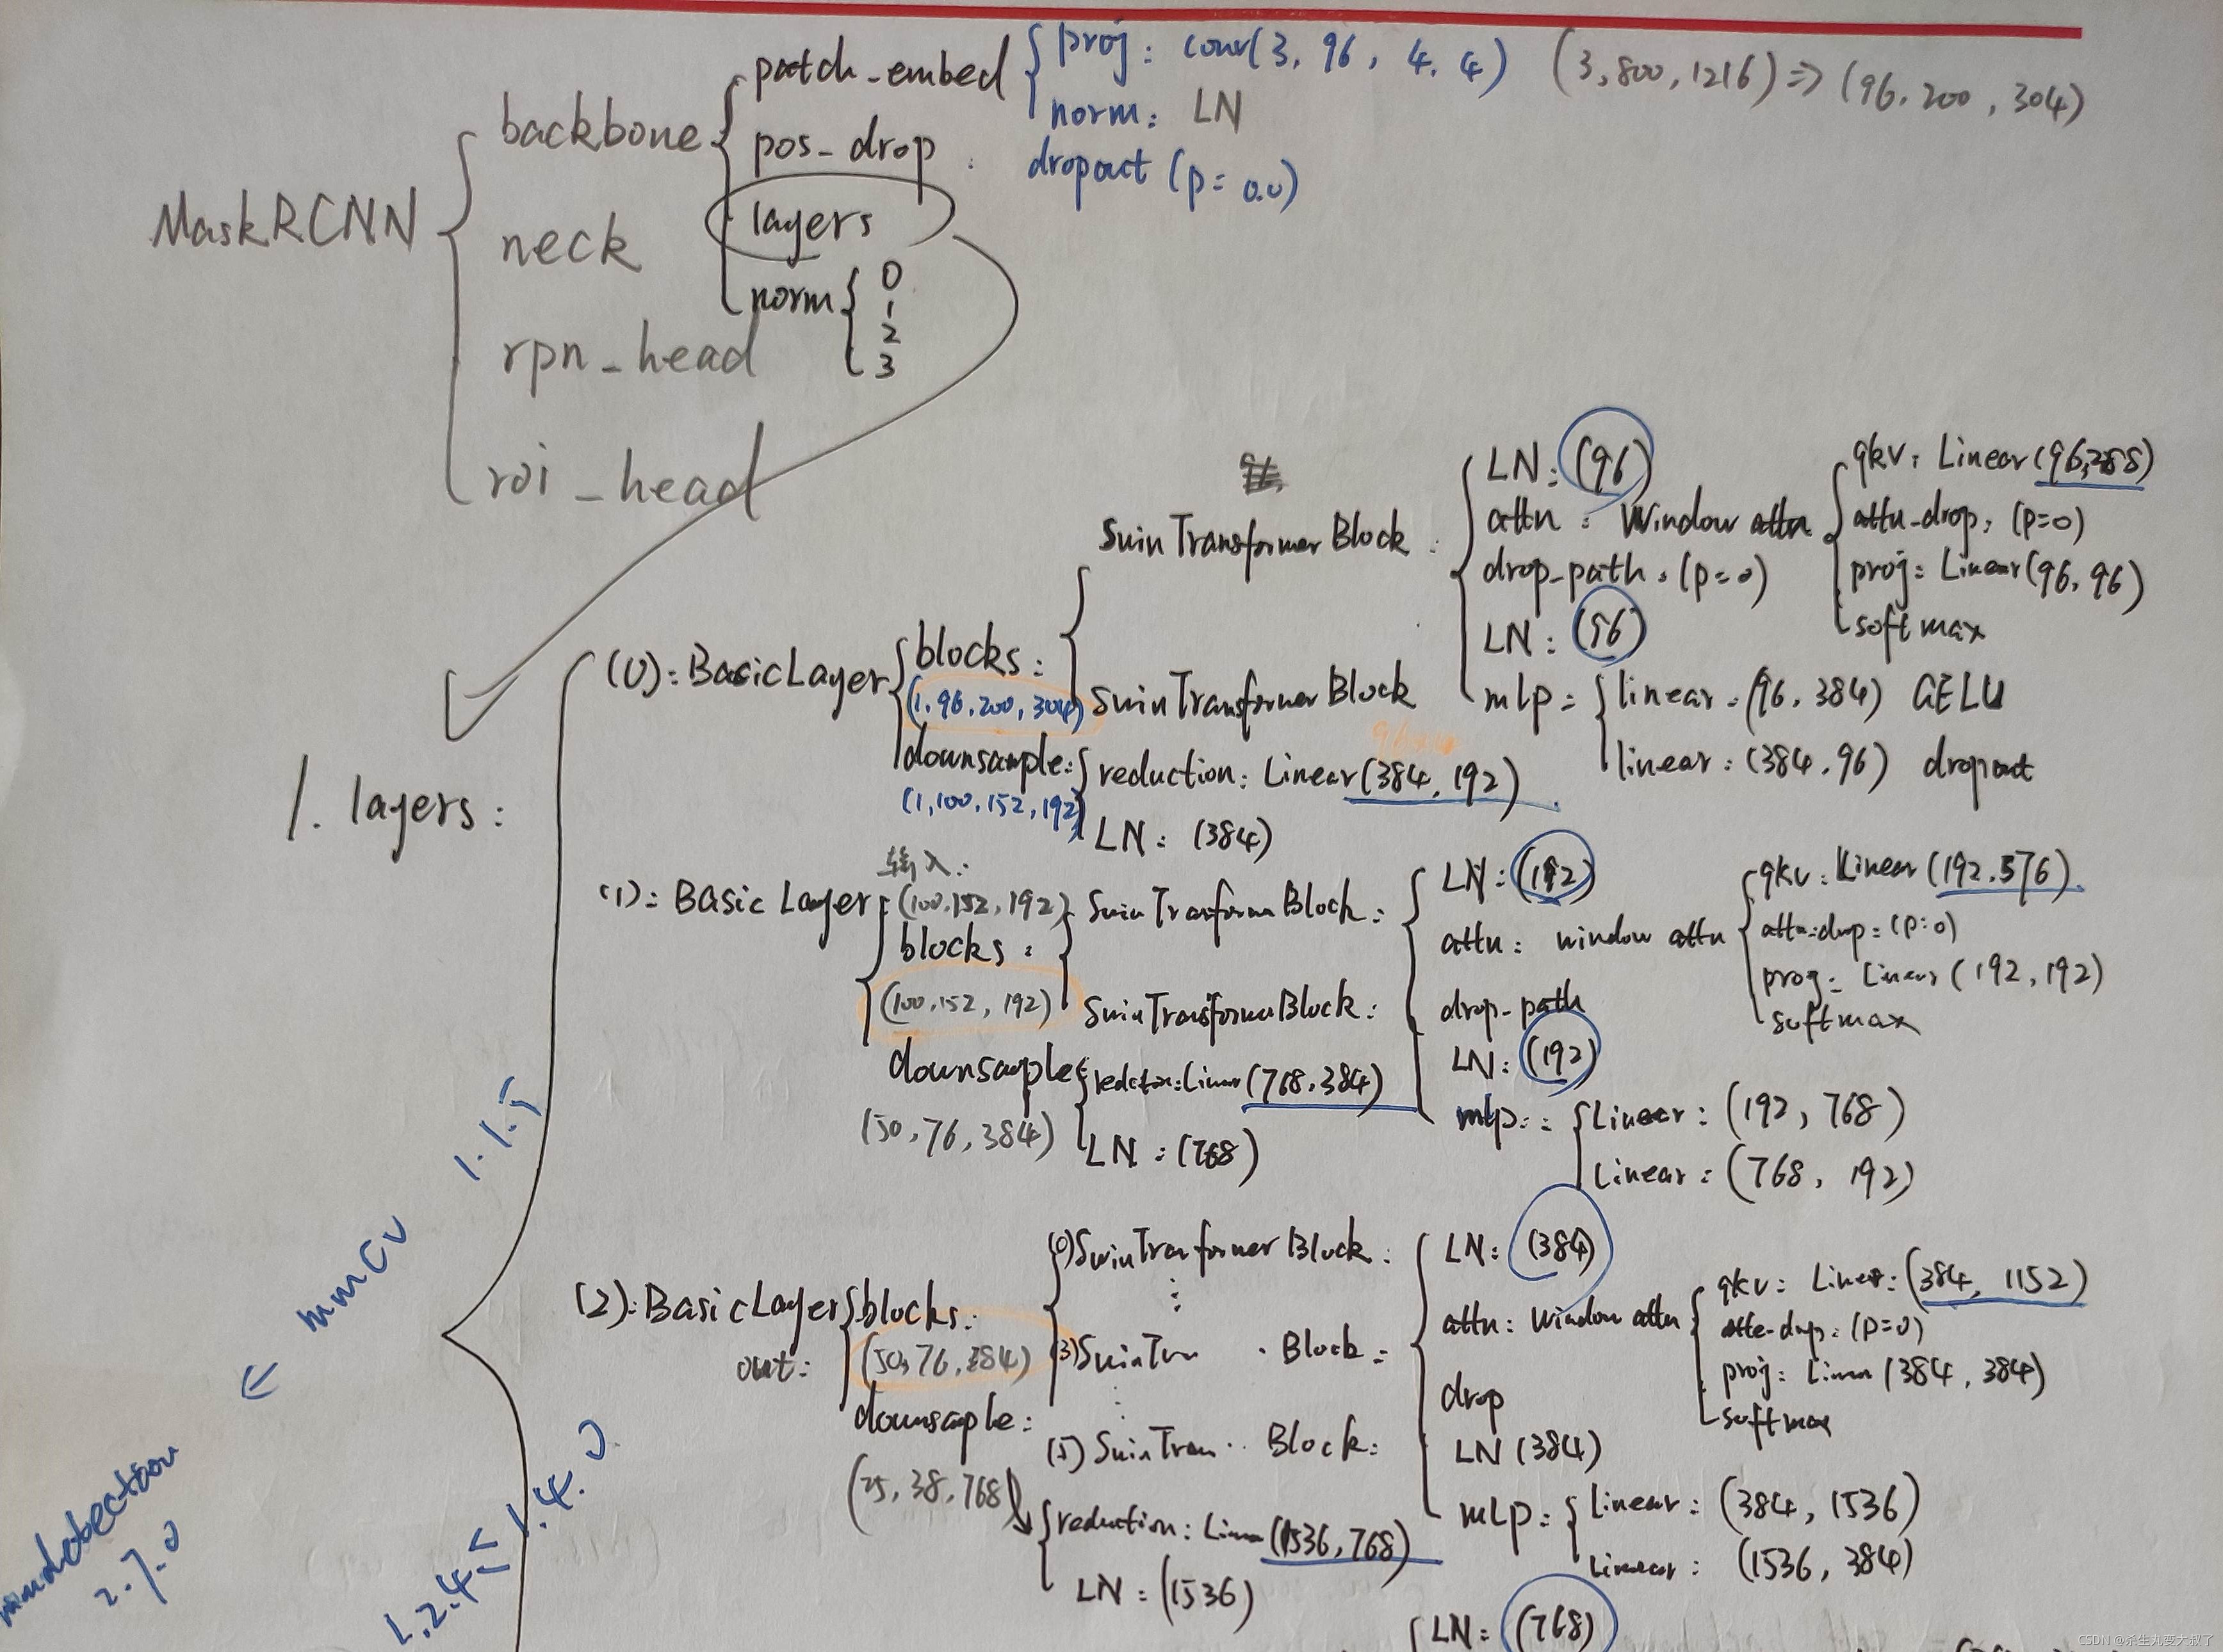 MaskRCNN
backbone
neck
rpn_head
roi_head
patch_embed
pos_drop :
layers
norm
0
1
2
3
proj: conv(3, 96, 4, 4) (3,800,1216) => (96.200, 304)
norm: LN
dropout (p= 0.0)
1. layers:
(0): BasicLayer
blocks:
(1,96,200,304)
SwinTransformerBlock :
SwinTransformerBlock
LN: (96)
attn : Window attn
drop_path. (p=0)
LN: (96)
mlp =
linear: (96, 384) GELU
linear: (384, 96) dropout
qkv: Linear(96,288)
attn_drop: (p=0)
proj: Linear(96, 96)
softmax
downsample:
(1,100,152,192)
reduction: Linear(384, 192)
LN: (384)
(1): BasicLayer
输入:
(100,152,192)
blocks:
(100,152,192)
SwinTransformBlock:
SwinTransformerBlock:
LN: (192)
attn: window attn
drop_path
LN: (192)
mlp:
Linear: (192, 768)
Linear: (768, 192)
qkv: Linear (192.576)
attn-drop: (p:0)
proj: Linear (192, 192)
softmax
downsample
(50,76,384)
LN: (768)
(768,384)
(2): BasicLayer
blocks:
out: (50,76,384)
(0) SwinTransformer Block:
(3) SwinTran . Block:
(5) SwinTran .. Block:
LN: (384)
attn: Window attn
drop
LN (384)
mLp:
Linear: (384, 1536)
Linear: (1536, 384)
qkv: Linear: (384, 1152)
(p=0)
proj: Linear (384, 384)
softmax
downsaple:
(25,38,768)
reduction: Linear (1536,768)
LN: (1536)
LN: (768)
mmdetection
2.7.0
<= mmcv
1.1.5
1.2.4 ≤ 1.4.0
CSDN @杀生丸变大叔了